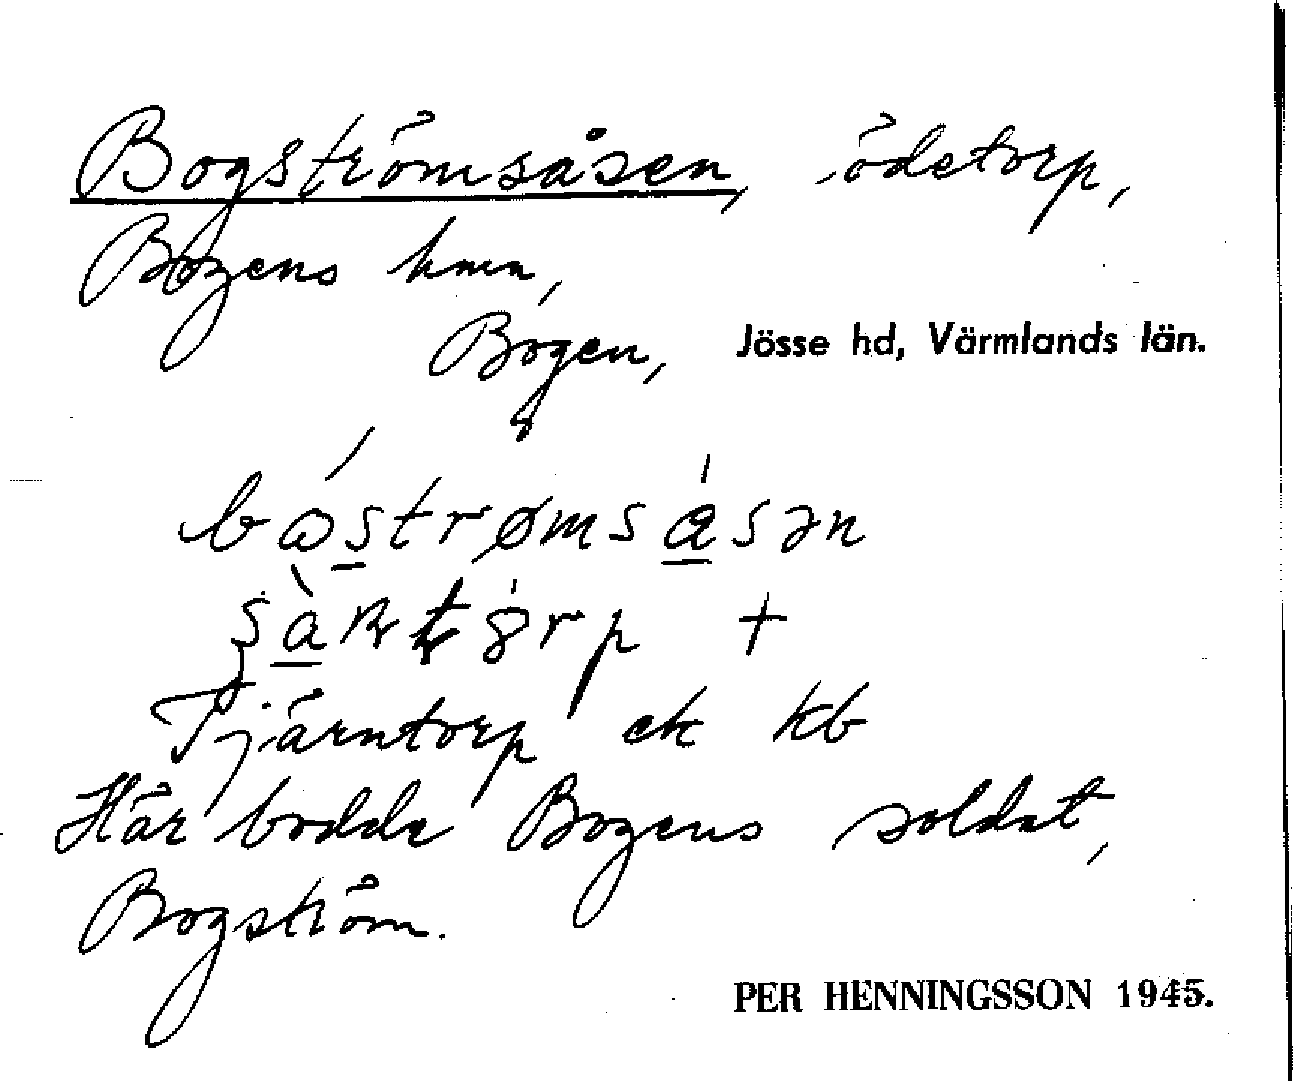 Bogströmsåsen, ödetorp,
Bogens hmn,
Bogen, Jösse hd, Värmlands län.
Tjärntorp ek kb
Här bodde Bogens soldat,
Bogström.
PER HENNINGSSON 1945.